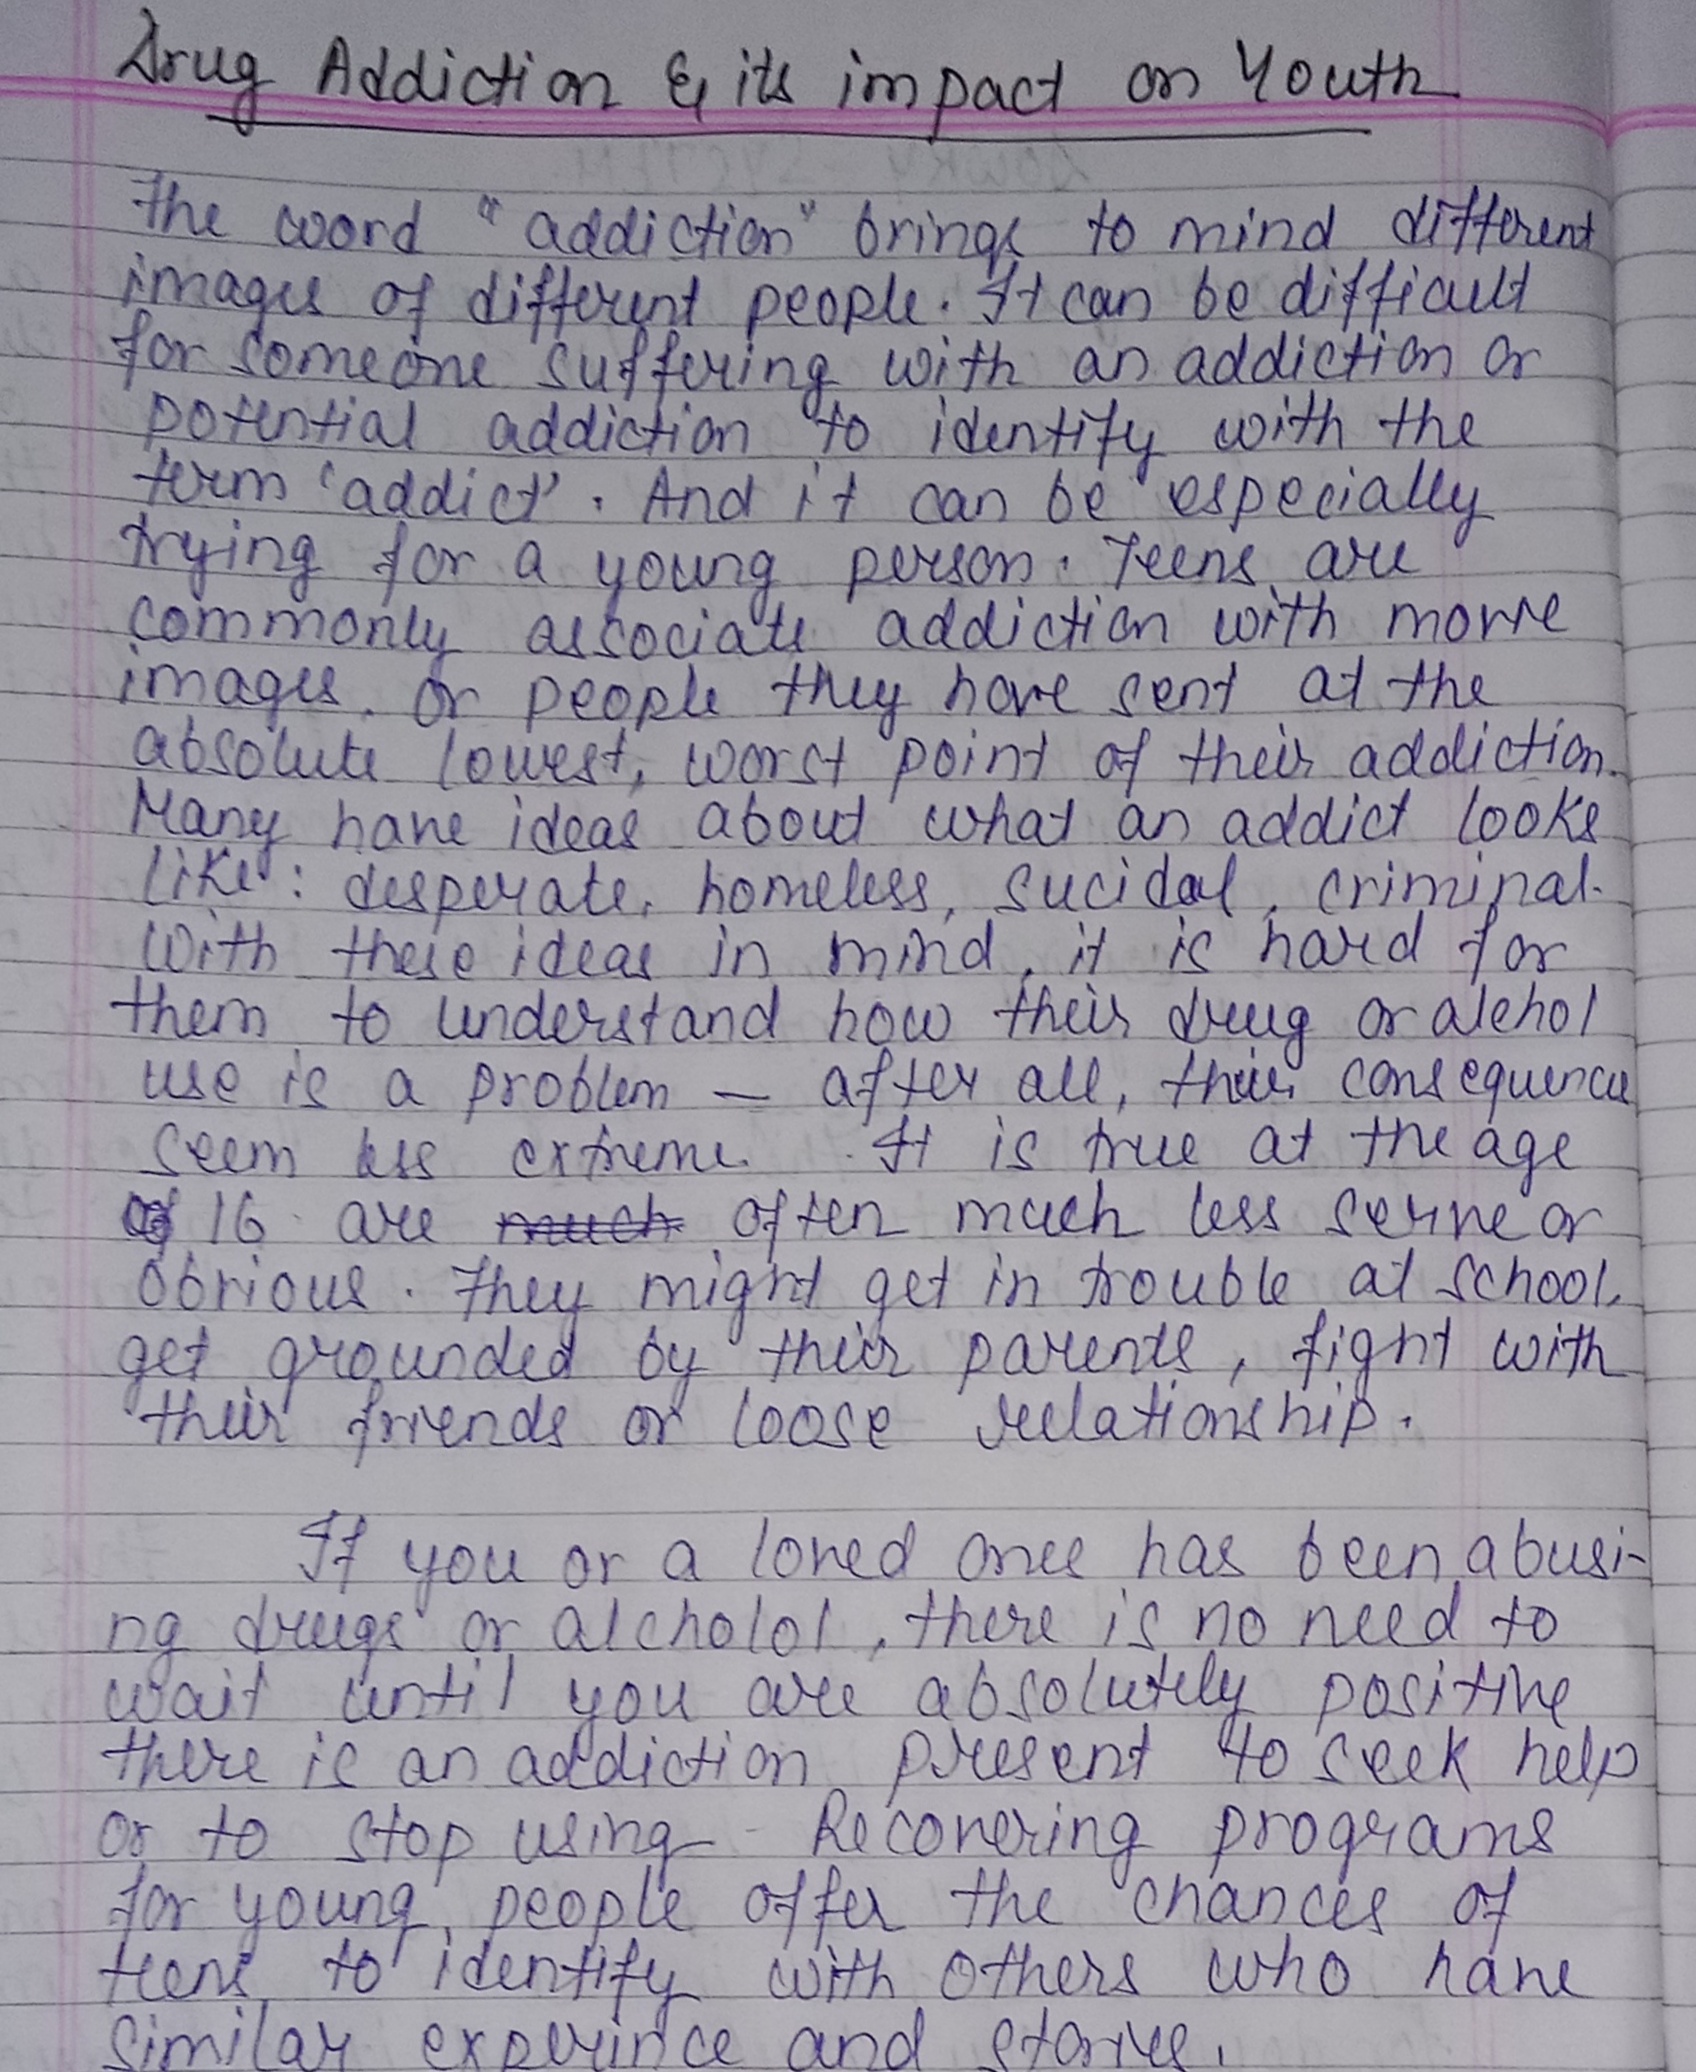 Drug Addiction & its impact on Youth
The word "addiction" brings to mind different
images of different people. It can be difficult
for someone suffering with an addiction or
potential addiction to identify with the
term 'addict'. And it can be especially
trying for a young person. Teens are
commonly associate addiction with movie
images, or people they have sent at the
absolute lowest, worst point of their addiction.
Many have ideas about what an addict looks
like: desperate, homeless, sucidal, criminal.
With these ideas in mind, it is hard for
them to understand how their drug or alchol
use is a problem — after all, their consequence
seem less extreme. It is true at the age
of 16 are much often much less serive or
obvious. They might get in trouble at school,
get grounded by their parents, fight with
their friends or loose relationship.
If you or a loved ones has been abusi-
ng drugs or alcholol, there is no need to
wait until you are absolutely positive
there is an addiction present to seek help
or to stop using. Recovering programs
for young people offer the chances of
teens to identify with others who have
similar experince and stories.